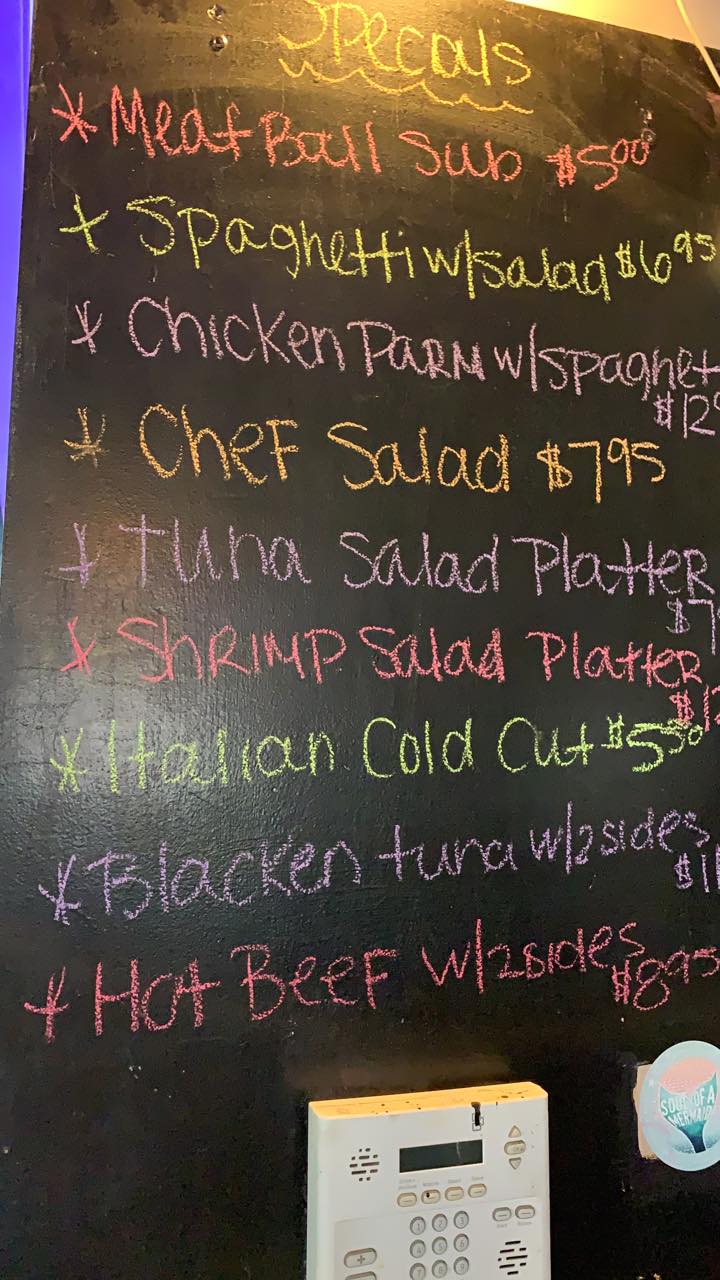 Specals
* Meat Ball Sub $5.00
* Spaghetti w/salad $6.95
* Chicken Parm w/spaghet
$12
* Chef Salad $7.95
* Tuna Salad Platter
$7
* Shrimp Salad Platter
$12
* Italian Cold Cut $5.50
* Blacken tuna w/2 sides
$1
* Hot Beef w/2 sides
$8.95
SOUL OF A
MERMAID
1 2 3
4 5 6
7 8 9